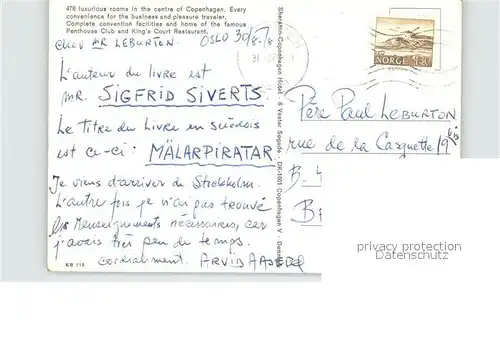 476 luxurious rooms in the centre of Copenhagen. Every
convenience for the business and pleasure traveler.
Complete convention facilities and home of the famous
Penthouse Club and King's Court Restaurant.
Cher MR LEBURTON. OSLO 30/8
L'auteur du livre est
MR. SIGFRID SIVERTS.
Le Titre du Livre en suédois
est ce-ci: MÄLARPIRATAR.
Je viens d'arriver de Stockholm.
L'autre fois je n'ai pas trouvé
les renseignements nécessaires, car
j'avais très peu de temps.
cordialement. ARVID
Sheraton-Copenhagen Hotel - 6 Vester Søgade - DK-1601 Copenhagen V -
NORGE
Père Paul LEBURTON
rue de la Casquette, 19 bis
B-4
privacy protection
Datenschutz